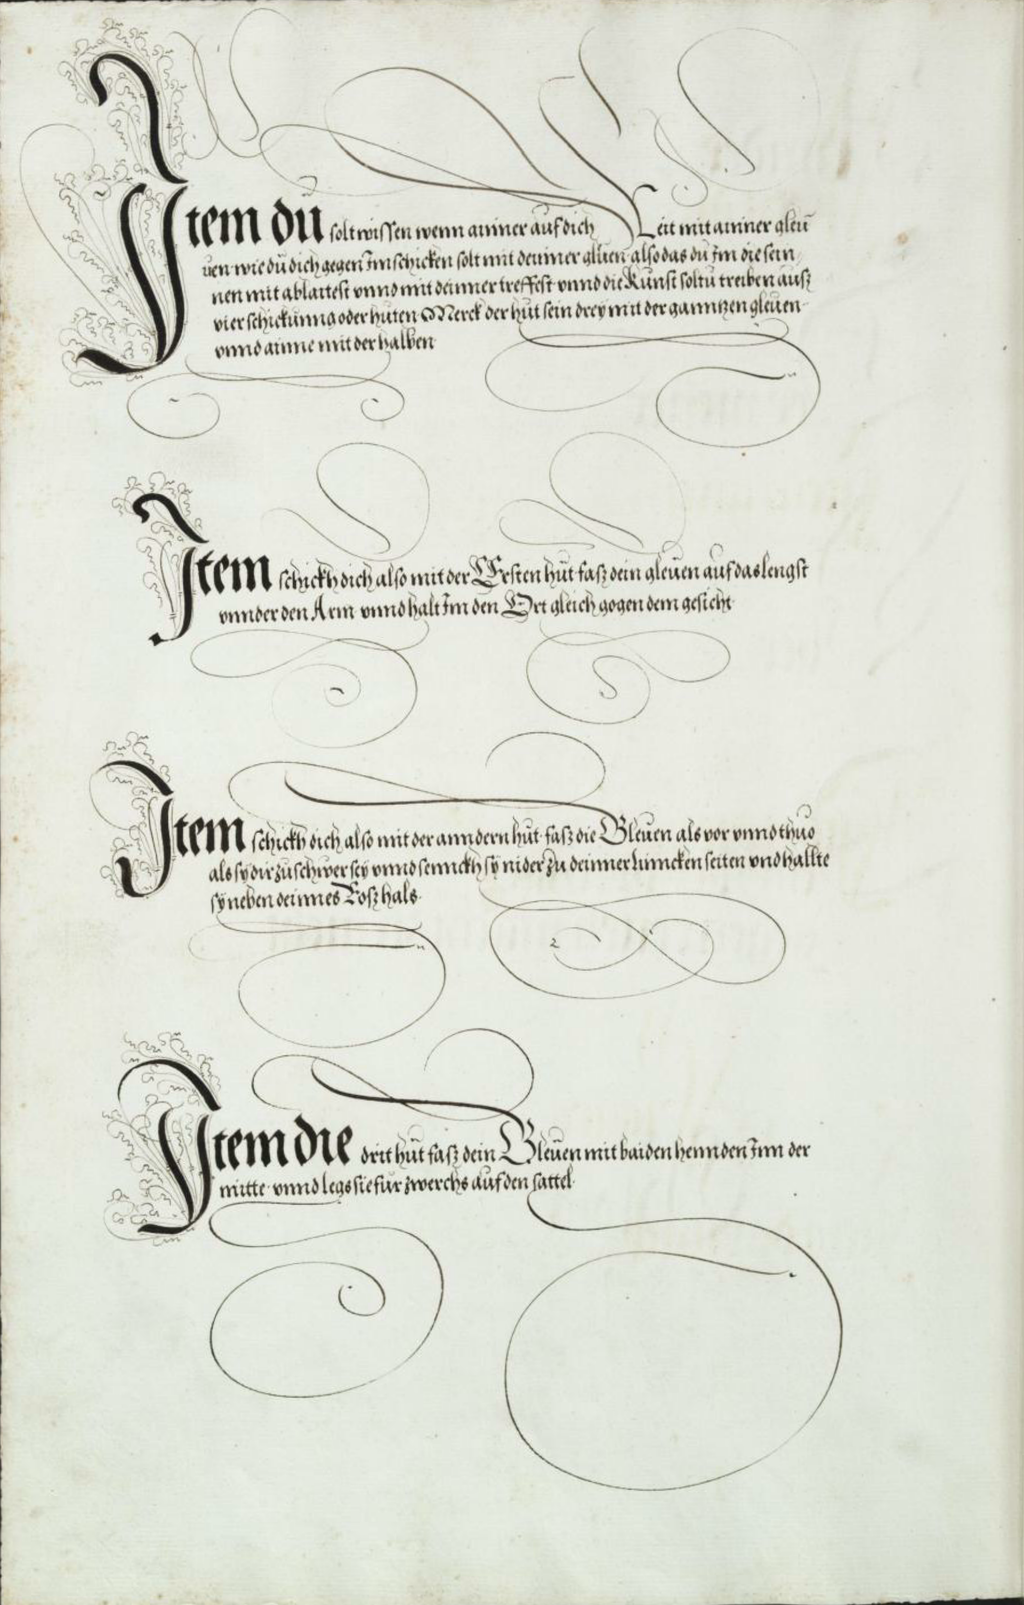 Item dŭ solt wissen wenn ainner aŭf dich Reit mit ainner gleŭ
ŭen wie dŭ dich gegen Im schicken solt mit deinner gleŭen also das dŭ Im die sein
nen mit ablaitest vnnd mit deinner treffest vnnd die Kunst soltu treiben aŭsz
vier schickŭnng oder hŭten Merck der hŭt sein drey mit der ganntzen gleŭen
vnnd ainne mit der halben
Item schickh dich also mit der Ersten hŭt fasz dein gleŭen aŭf das lengst
vnnder den Arm vnnd halt Im den Ort gleich gogen dem gesicht
Item schickh dich also mit der anndern hŭt fasz die Gleŭen als vor vnnd thuo
als sy dir zŭ schwer sey vnnd sennckh sy nider zu deinner Linncken seiten vnd hallte
sy neben deinnes Rosz hals
Item die drit hŭt fasz dein Gleŭen mit baiden hennden Inn der
mitte vnnd legs sie fŭr zwerchs aŭf den sattel